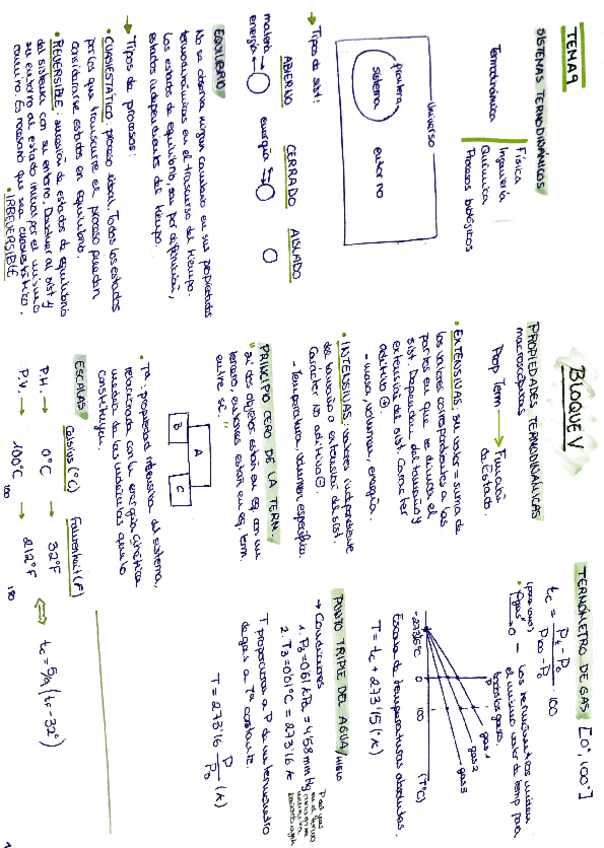 BLOQUE V
TEMA 9
SISTEMAS TERMODINÁMICOS
Termodinámica
Física
Ingeniería
Química
Procesos biológicos
universo
frontera
sistema
entorno
→ Tipos de sist:
ABIERTO
CERRADO
AISLADO
materia
energía
energía
EQUILIBRIO
No se observa ningún cambio en sus propiedades
termodinámicas en el trascurso del tiempo.
Los estados de equilibrio son por definición,
estados independientes del tiempo.
→ Tipos de procesos:
• CUASIESTÁTICO: proceso ideal. Todos los estados
por los que transcurre el proceso puedan
considerarse estados en equilibrio.
• REVERSIBLE: sucesión de estados de equilibrio
del sistema con su entorno. Devolver al sist y
su entorno al estado inicial por el mismo
camino. Es necesario que sea cuasiestático.
• IRREVERSIBLE
PROPIEDADES TERMODINÁMICAS
macroscópicas
Prop Term → Función
de Estado.
• EXTENSIVAS: su valor = suma de
los valores correspondientes a las
partes en que se divida el
sist. Dependen del tamaño y
extensión del sist. Carácter
aditivo ⊕.
- masa, volumen, energía.
• INTENSIVAS: valores independiente
del tamaño o extensión del sist.
Carácter no aditivo ⊖.
- Temperatura, volumen específico.
PRINCIPIO CERO DE LA TERM.
"si dos objetos están en eq. con un
tercero, entonces están en eq. term.
entre sí."
A
B
C
• Tª: propiedad intensiva del sistema,
relacionada con la energía cinética
media de las moléculas que lo
constituyen.
ESCALAS
Celsius (°C)
Fahrenheit (F)
P.H. → 0°C → 32°F
P.V. → 100°C → 212°F
100
180
⇔ tc = 5/9 (tF - 32°)
TERMÓMETRO DE GAS [0°, 100°]
tc = Pt - P0 / P100 - P0 · 100
• Pgas → 0 - Los termómetros miden
el mismo valor de temp para
todos los gases.
P
gas 1
gas 2
gas 3
-273'15°C
0
100
(T°C)
Escala de temperaturas absolutas.
T = tc + 273'15 (°K)
PUNTO TRIPLE DEL AGUA/HIELO
→ Condiciones
1. P3 = 0'61 kPa = 4'58 mm Hg
2. T3 = 0'01°C = 273'16 K
T proporciona a P de un termómetro
de gas a Tª constante.
T = 273'16 P/P3 (K)
1